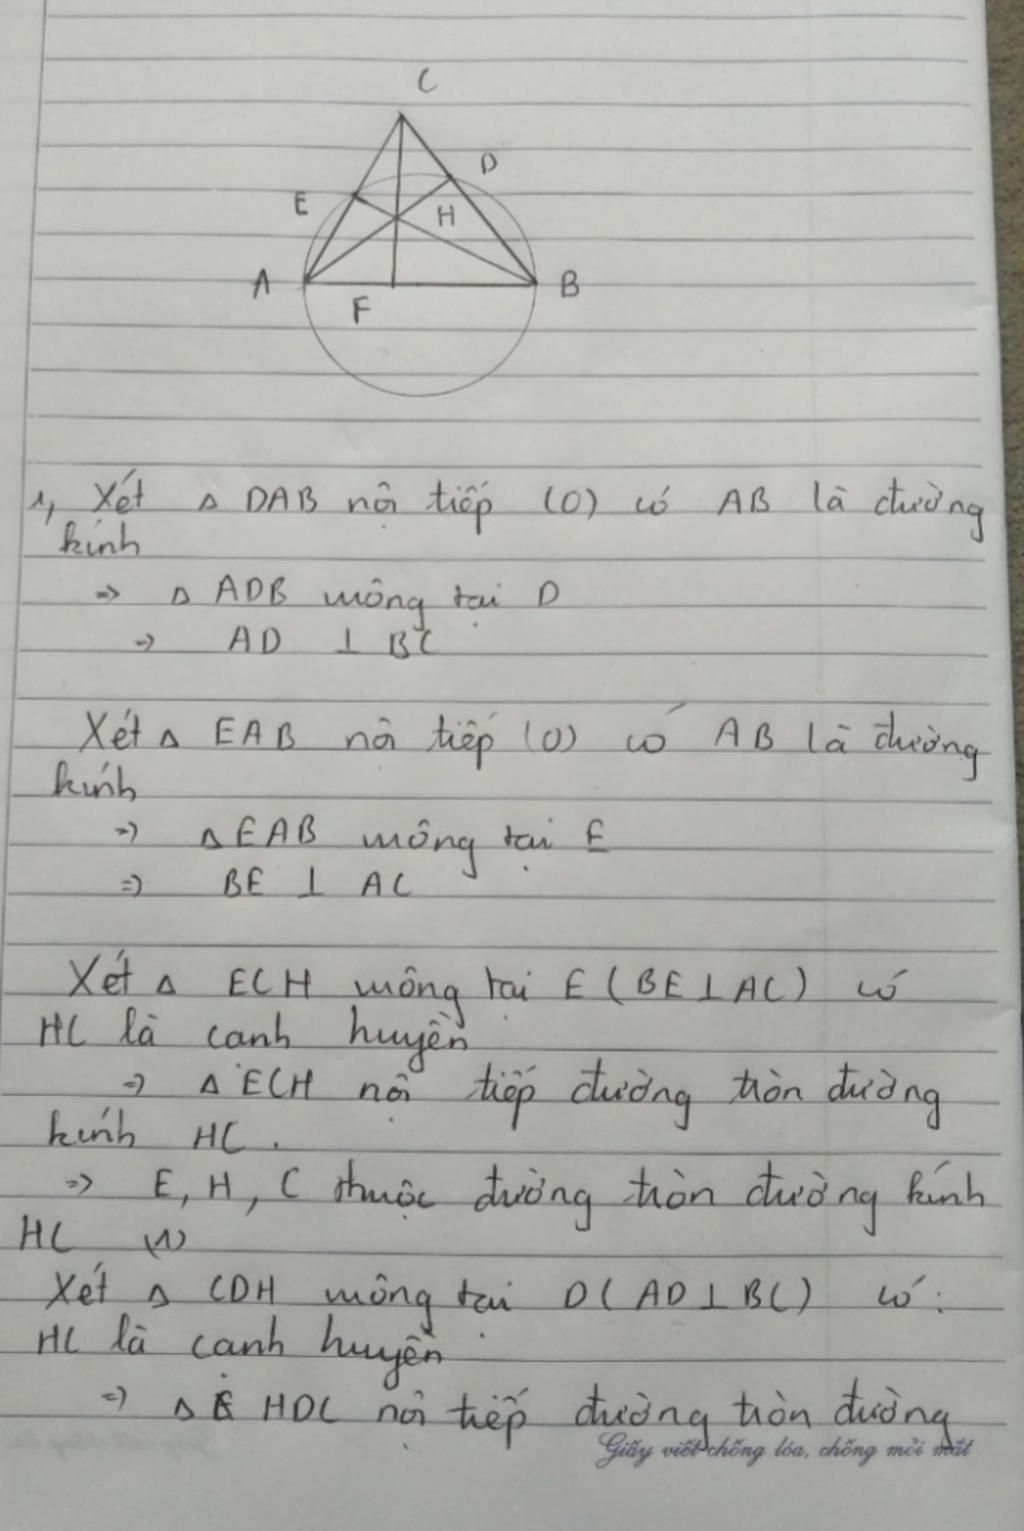 C
D
E
H
A
B
F
1, Xét △ DAB nội tiếp (O) có AB là đường
kính
=> △ ADB vuông tại D
=> AD ⊥ BC
Xét △ EAB nội tiếp (O) có AB là đường
kính
=> △EAB vuông tại E
=> BE ⊥ AC
Xét △ ECH vuông tại E (BE⊥AC) có
HC là cạnh huyền
=> △ ECH nội tiếp đường tròn đường
kính HC.
=> E, H, C thuộc đường tròn đường kính
HC (1)
Xét △ CDH vuông tại D (AD⊥BC) có:
HC là cạnh huyền
=> △ HDC nội tiếp đường tròn đường
Giấy viết chống lóa, chống mỏi mắt